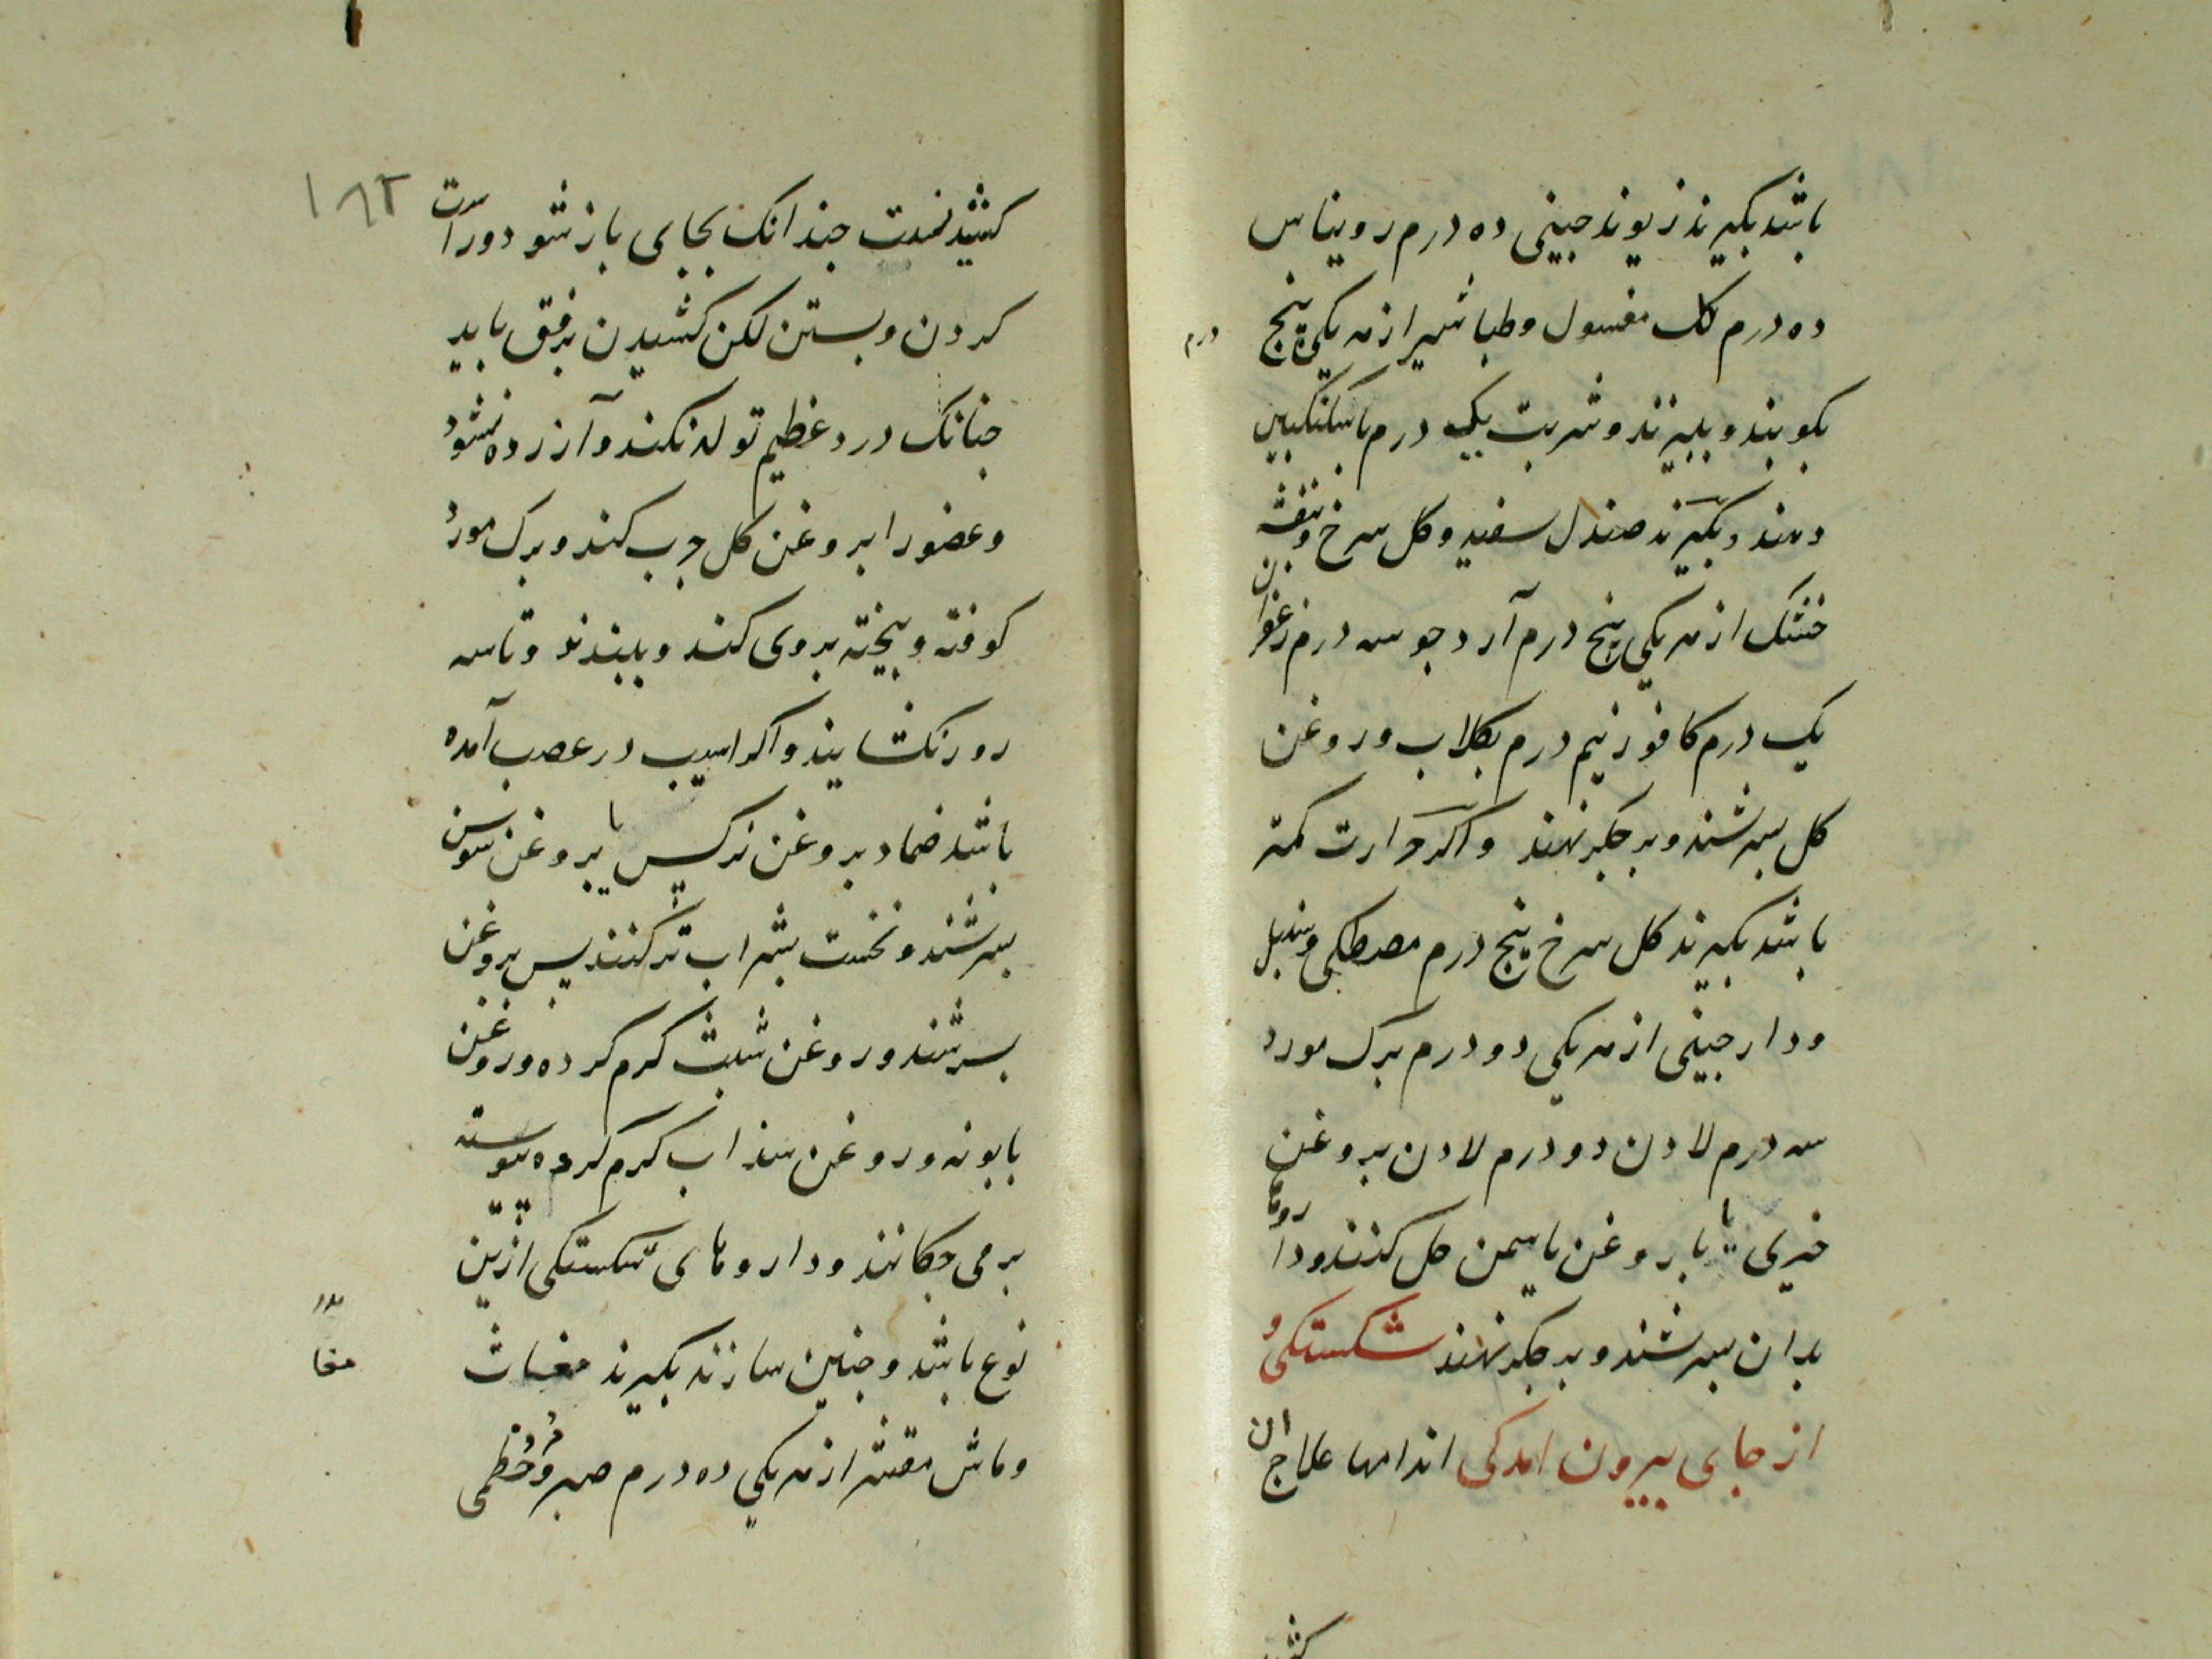 باشد بکیرند زیوند جینی ده درم روبناس
ده درم لک مغسول وطباشیر از هر یکی پنج
درم
بکوبند و ببیزند و شربت یک درم باسکنکبین
دهند و بکیرند صندل سفید و کل سرخ و بنفشه
خشک از هر یکی پنج درم آرد جو سه درم زعفران
یک درم کافور نیم درم بکلاب و روغن
کل بسرشند و بر جکر نهند و اکر حرارت کمتر
باشد بکیرند کل سرخ پنج درم مصطکی و سنبل
ودارجینی از هر یکی دو درم برک مورد
سه درم لادن دو درم لادن بروغن
خیری یا بروغن یاسمین حل کنند و داروها
بدان بسرشند و بر جکر نهند شکستکی و
از جای بیرون امدکی اندامها علاج ان
کشید
۱۸۲
کشیدنست جندانک بجای باز شود و راست
کردن و بستن لکن کشیدن برفق باید
جنانک درد عظیم تولد نکند و آزرده نشود
وعضو را بروغن کل جرب کند و برک مورد
کوفته و بیخته بروی کند و ببندند و تا سه
روز نکشایند و اکر اسیب در عصب آمده
باشد ضماد بروغن نرکس یا بروغن سوسن
بسرشند و نخست بشراب تر کنند پس بروغن
بسرشند و روغن شبث کرم کرده و روغن
بابونه و روغن سذاب کرم کرده پیوسته
بر می جکانند و داروهای شکستکی ازین
نوع باشد و جنین سازند بکیرند مغاث
مغا
وماش مقشر از هر یکی ده درم صبر و خطمی